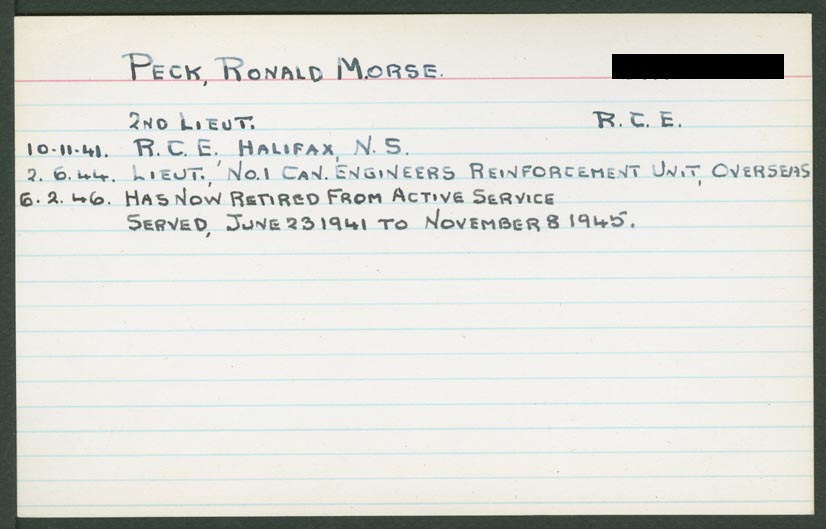 PECK, RONALD MORSE.
2ND LIEUT. R. C. E.
10-11-41. R. C. E. HALIFAX, N. S.
2. 6. 44. LIEUT., NO. 1 CAN. ENGINEERS REINFORCEMENT UNIT, OVERSEAS
6. 2. 46. HAS NOW RETIRED FROM ACTIVE SERVICE
SERVED, JUNE 23 1941 TO NOVEMBER 8 1945.